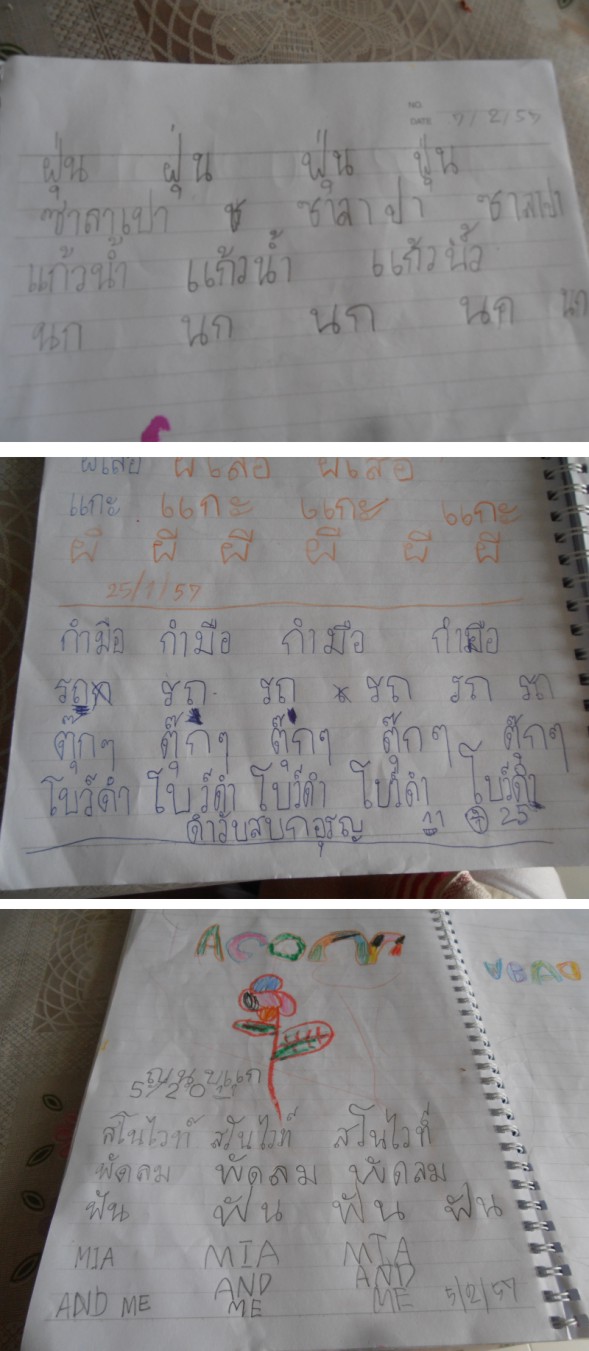 NO.
DATE 7/2/57
ฝุ่น ฝุ่น ฝุ่น ฝุ่น
ซาลาเปา ซ ซาลาปา ซาลเปา
แก้วน้ำ แก้วน้ำ แก้วน้ำ
นก นก นก นก นก
ผีเสื้อ ผีเสื้อ ผีเสื้อ
แกะ แกะ แกะ แกะ
ผี ผี ผี ผี ผี ผี
25/1/57
กำมือ กำมือ กำมือ กำมือ
รถ รถ รถ รถ รถ รถ
ตุ๊กๆ ตุ๊กๆ ตุ๊กๆ ตุ๊กๆ ตุ๊กๆ
โบว์ดำ โบว์ดำ โบว์ดำ โบว์ดำ โบว์ดำ
25
ACORN
สโนไวท์ สวันไวท์ สโนไวท์
พัดลม พัดลม พัดลม
ฟัน ฟัน ฟัน ฟัน
MIA MIA MIA
AND ME AND ME AND ME 5/2/57